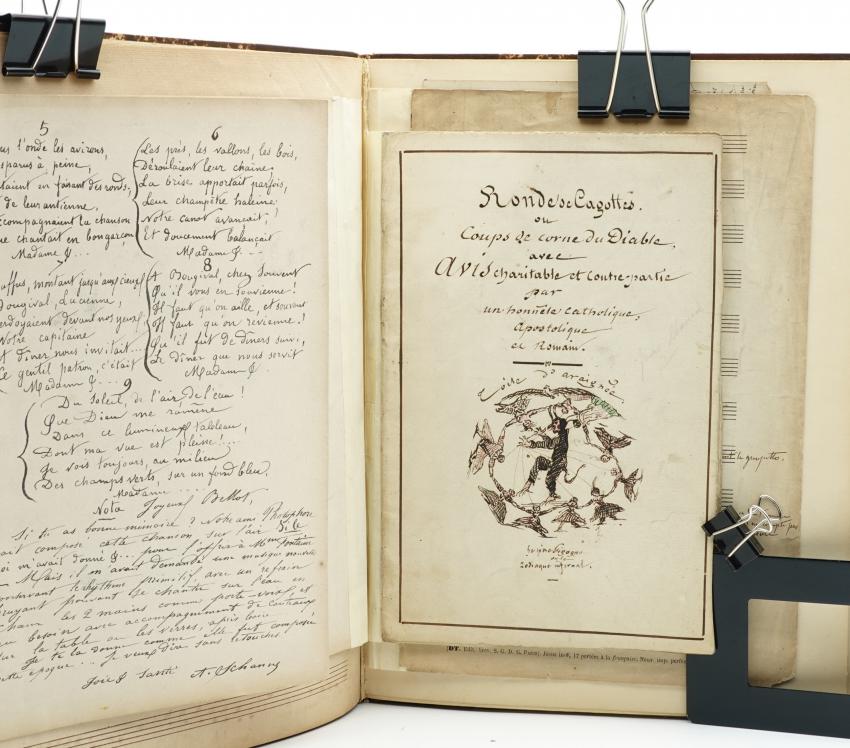 5
us l'onde les avirons,
sparus à peine,
taient en faisant des ronds,
de leur antienne,
ccompagnaient la chanson
ue chantait en bougarçon
Madame J...
6
Les prés, les vallons, les bois,
Déroulaient leur chaîne,
La brise apportait parfois,
Leur champêtre haleine
Notre canot avançait!
Et doucement balançait
Madame J...
7
uffus, montant jusqu'aux cieux
Bougival, Lucienne,
erdoyaient devant nos yeux,
Notre capitaine
t dîner nous invitait...
e gentil patron, c'était
Madame J...
8
A Bougival, chez Souvent
Qu'il vous en souvienne!
Il faut qu'on aille, et souvent
Il faut qu'on revienne!
Qu'il fut de dîners suivi,
Le dîner que nous servit
Madame J.
9
Du soleil, de l'air, de l'eau!
Que Dieu me ramène
Dans ce lumineux tableau,
Dont ma vue est pleine!...
Je vois toujours, au milieu
Des champs verts, sur un fond bleu,
Madame...
Nota Joyeux Bellot,
Si tu as bonne mémoire? Notre ami
ait composé cette chanson sur l'air
oi m'avait donné J... pour l'offrir à Mme Fontaine
Mais, il en avait demandé une musique nouvelle
conservant le rhythme primitif avec un refrain
bruyant pouvant se chanter sur l'eau en
les 2 mains comme porte voix, et
besoin avec accompagnement de couteaux
sur la table ou les verres, après boire
Je te la donne comme elle fut composée
cette époque... je veux dire sans retouches.
Joie & santé A. Schann
Ronde de Cagottes.
ou
Coups de corne du Diable,
avec
Avis charitable et contre-partie
par
un honnête catholique,
Apostolique
et Romain.
Toile d'araignée
Zodiaque
[DT. Edit. brev. S. G. D. G. Paris]. Jésus in-8, 17 portées à la française. Nouv. imp. perfe